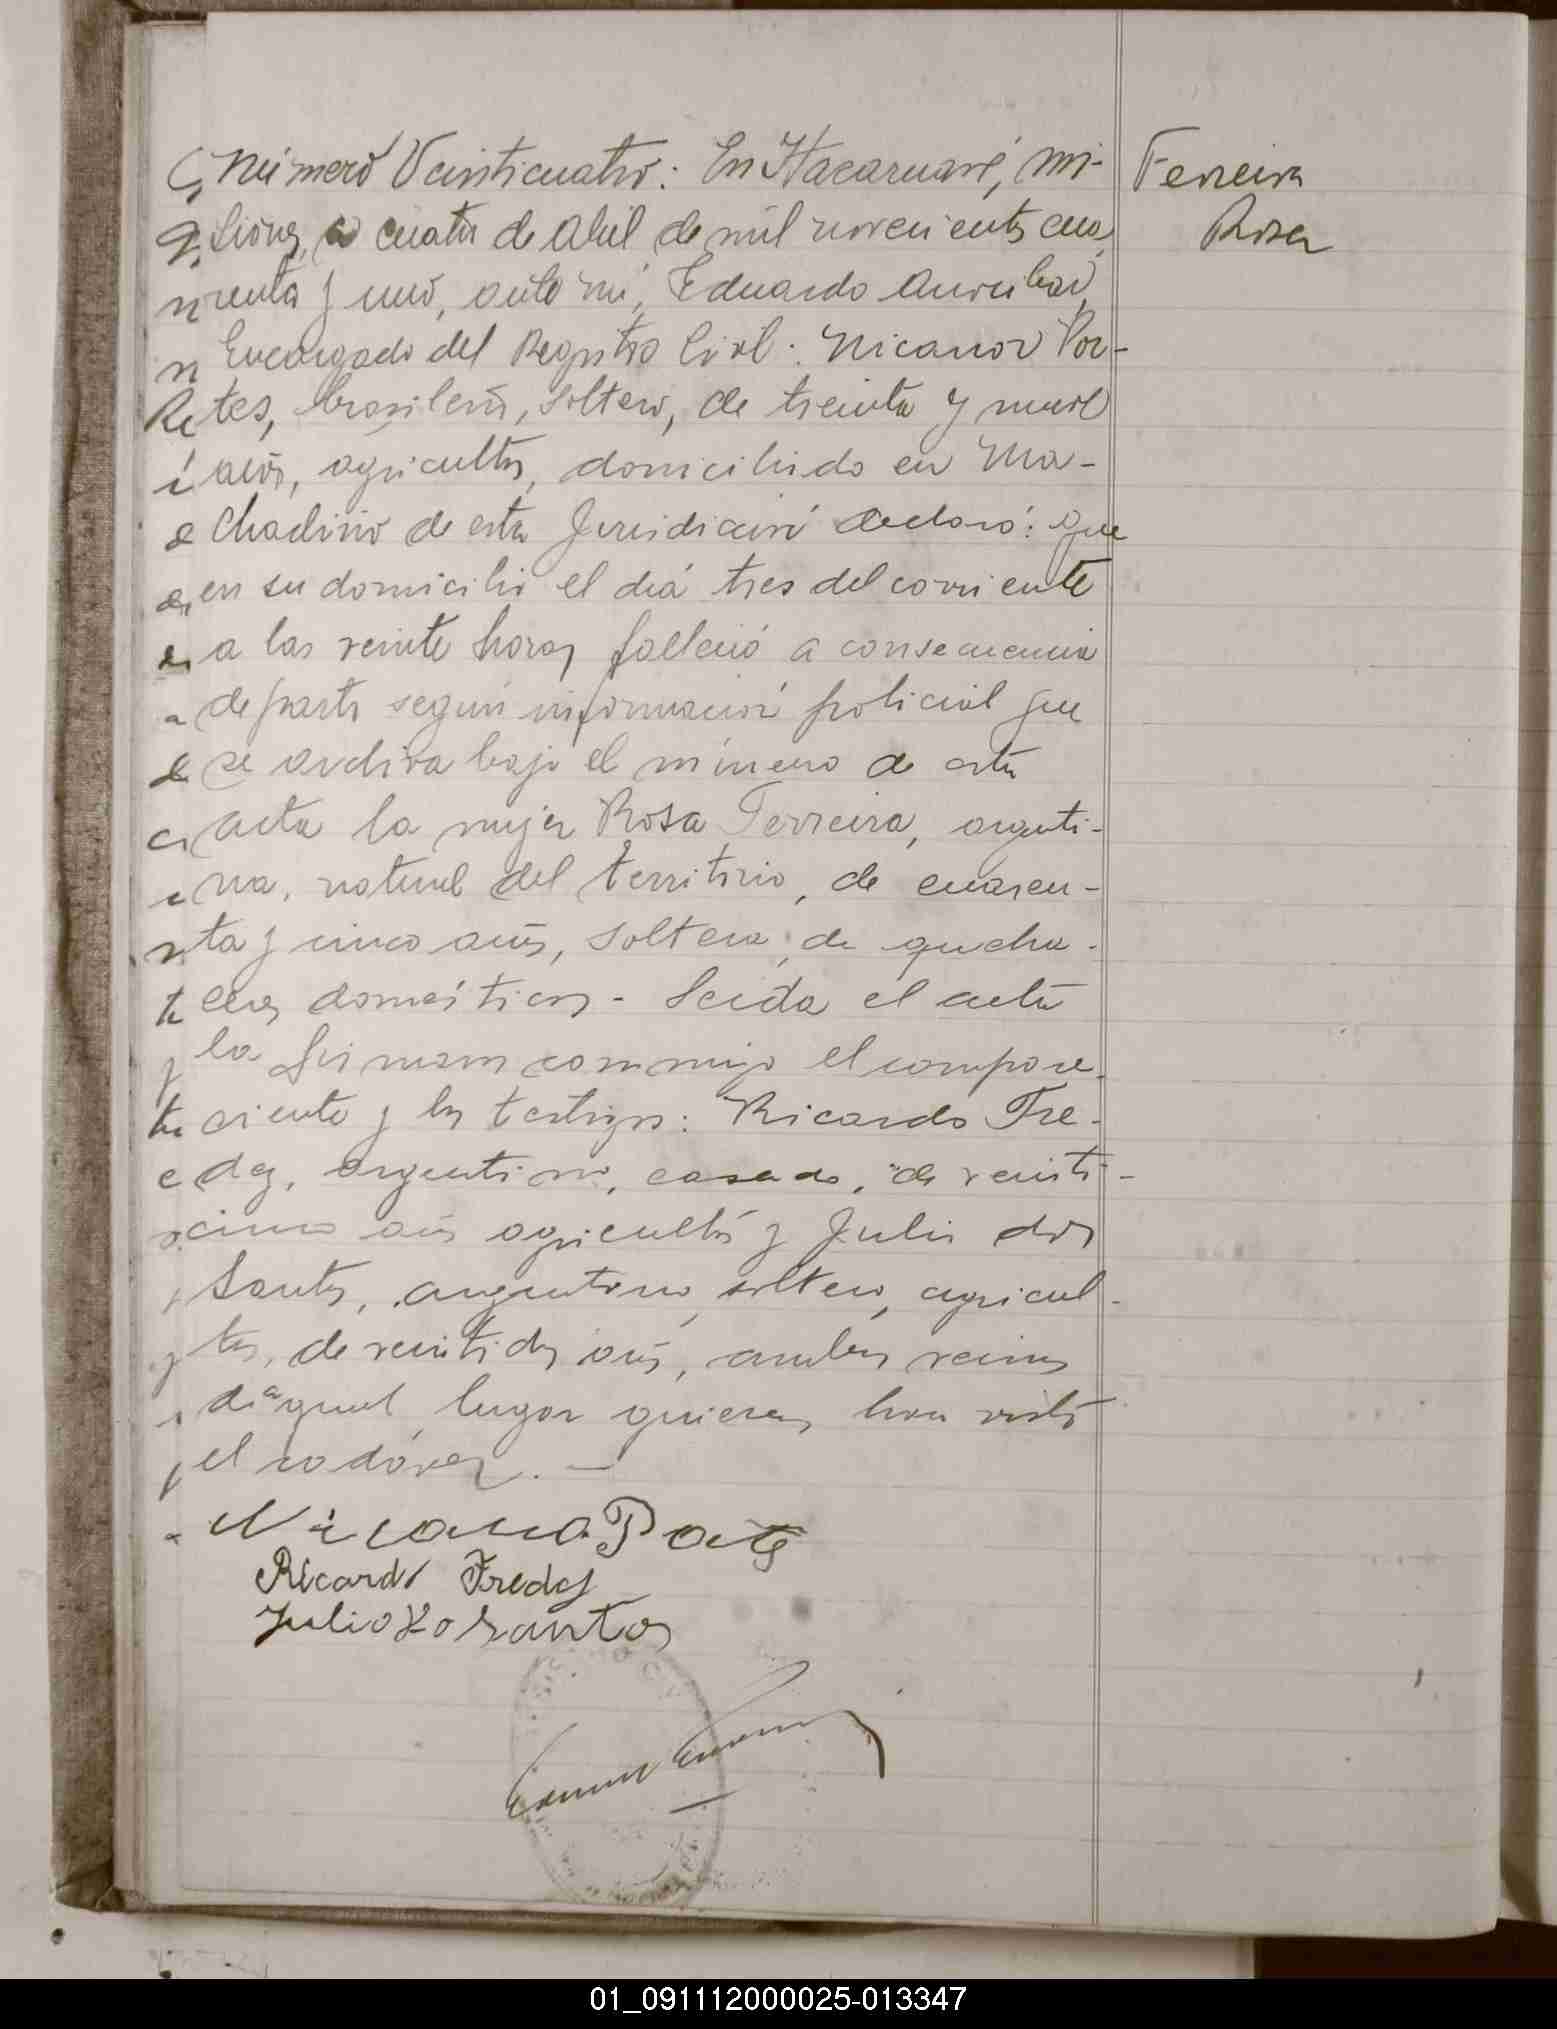 Número Veinticuatro: En Itacaruaré, Mi-
siones, a cuatro de Abril de mil novecientos cua
renta y uno, ante mí, Eduardo
Encargado del Registro Civil: Nicanor Por-
tes, brasilero, soltero, de treinta y nueve
años, agricultor, domiciliado en Ma-
chadinio de esta Jurisdicción declaró: Que
en su domicilio el día tres del corriente
a las veinte horas falleció a consecuencia
de parto según información policial que
se archiva bajo el número de esta
acta la mujer Rosa Ferreira, argenti-
na, natural del territorio, de cuaren-
ta y cinco años, soltera, de queha-
ceres domésticos - Leida el acta
la firman conmigo el compare-
ciente y los testigos: Ricardo Fre-
des, argentino, casado, de veinti-
cinco años agricultor y Julio dos
Santos, argentino, soltero, agricul-
tor, de veintidos años, ambos vecinos
de igual lugar quienes han visto
el cadáver. —
Nicanor Portes
Ricardo Fredes
Julio do Santos
Ferreira
Rosa
01_091112000025-013347